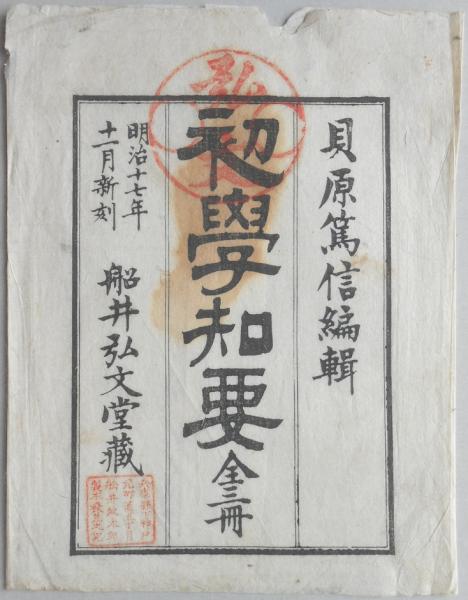 貝原篤信編輯
初學知要 全三冊
明治十七年
十一月新刻
船井弘文堂藏
弘文